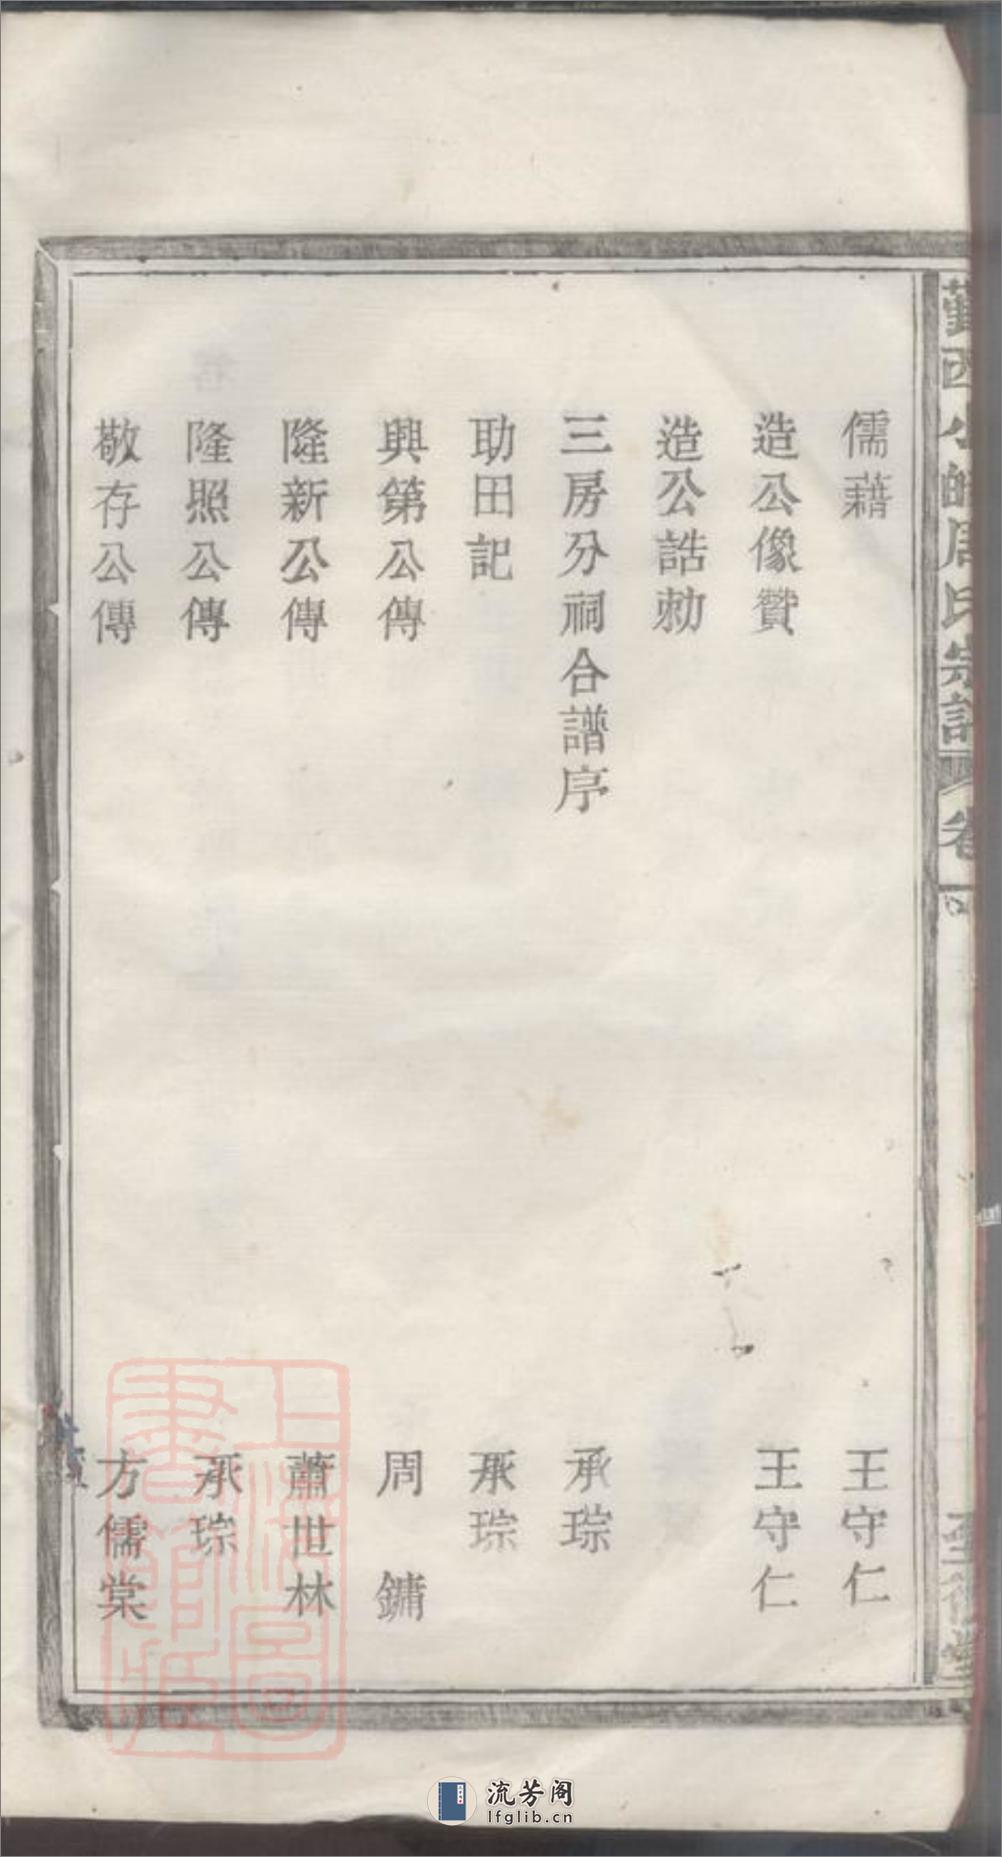 儒藉 王守仁
造公像贊 王守仁
造公誥勑
三房分祠合譜序 承琮
助田記 承琮
興第公傳 周鏞
隆新公傳 蕭世林
隆照公傳 承琮
敬存公傳 方儒棠
西小 周氏宗譜 卷
上海圖書館藏
流芳阁
lfglib.cn